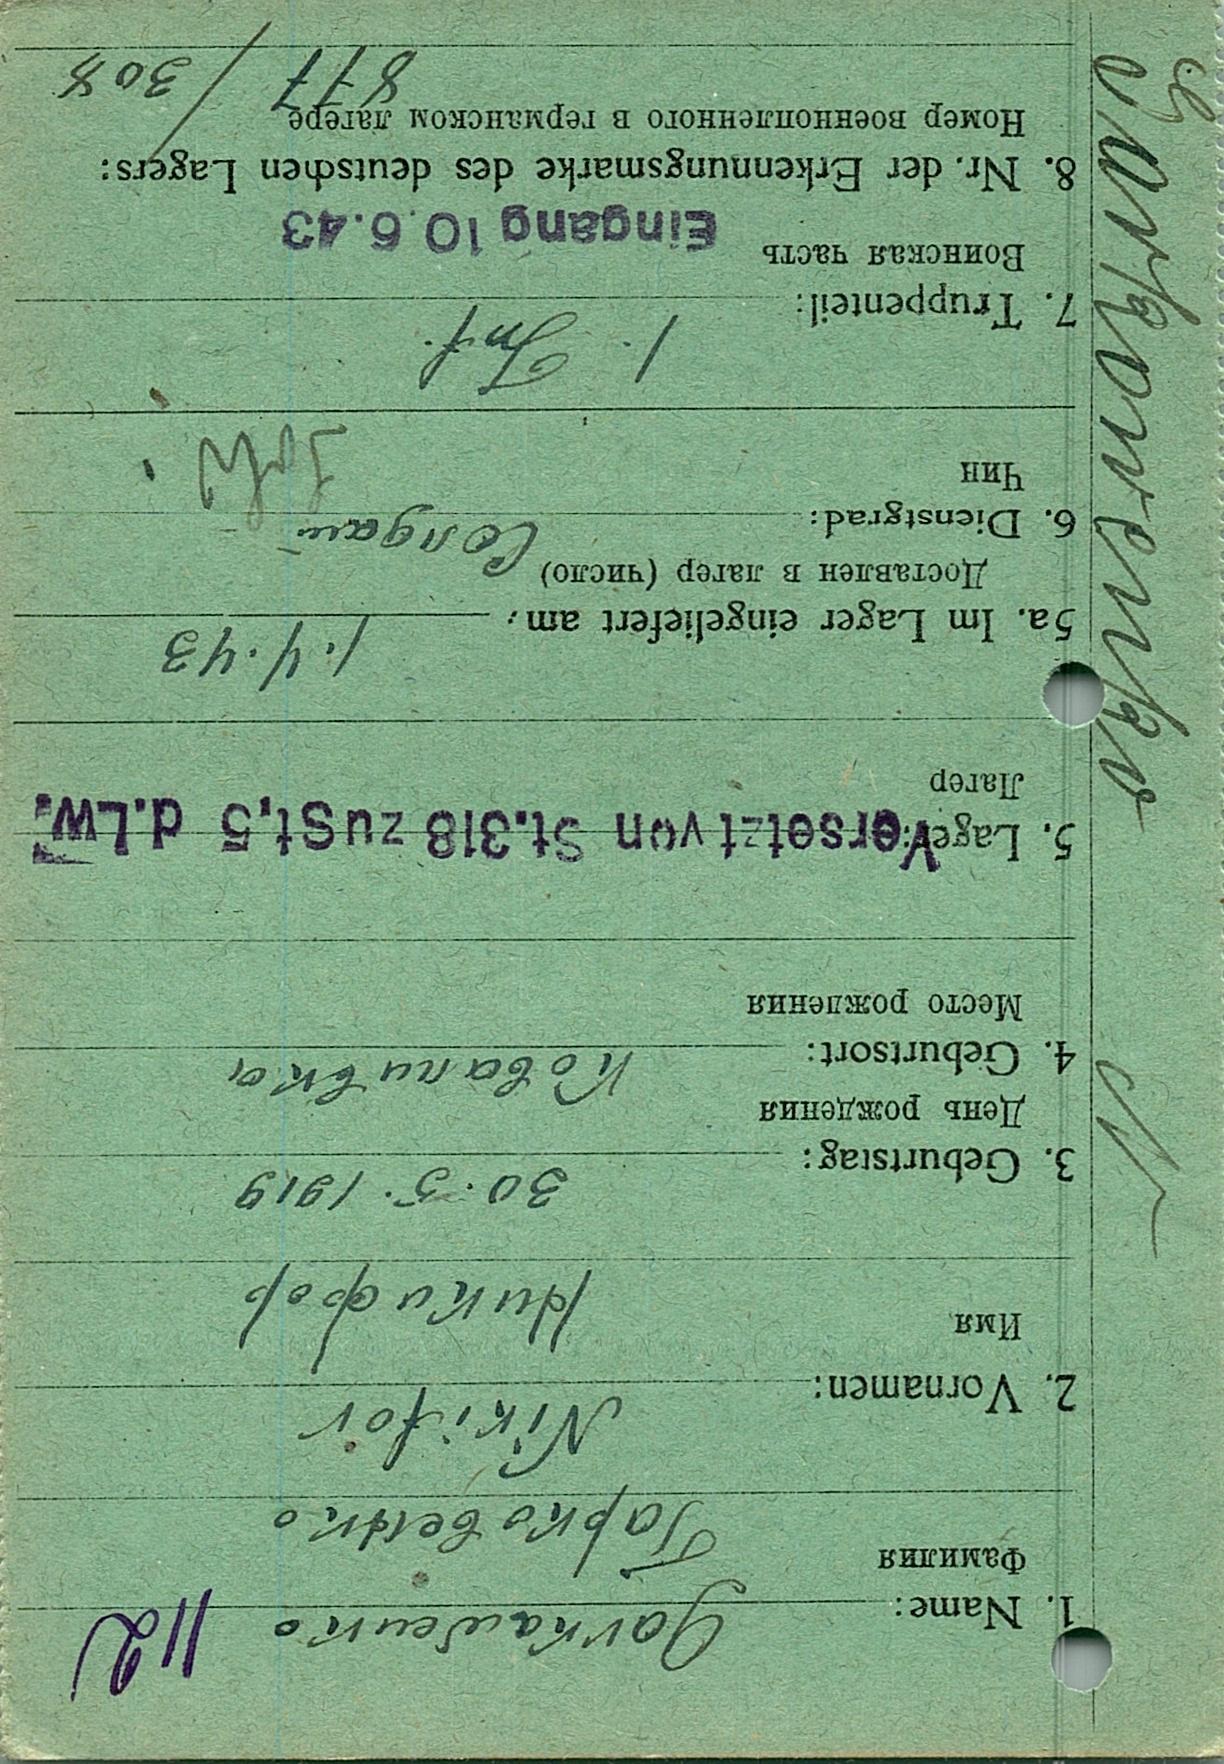 112
1. Name: Gorkawenko
Фамилия Гарковенко
2. Vornamen: Nikifor
Имя Никифор
3. Geburtstag: 30.5.1919
День рождения
4. Geburtsort: Коваливка
Место рождения
5. Lager: Versetzt von St.318 zu St,5 d.Lw.
Лагер
5a. Im Lager eingeliefert am: 1.4.43
Доставлен в лагер (число)
6. Dienstgrad: Солдат
Чин
7. Truppenteil: 1. Inf.
Воинская часть
Eingang 10.6.43
8. Nr. der Erkennungsmarke des deutschen Lagers:
Номер военнопленного в германском лагере
877 / 308
Garkowenko N